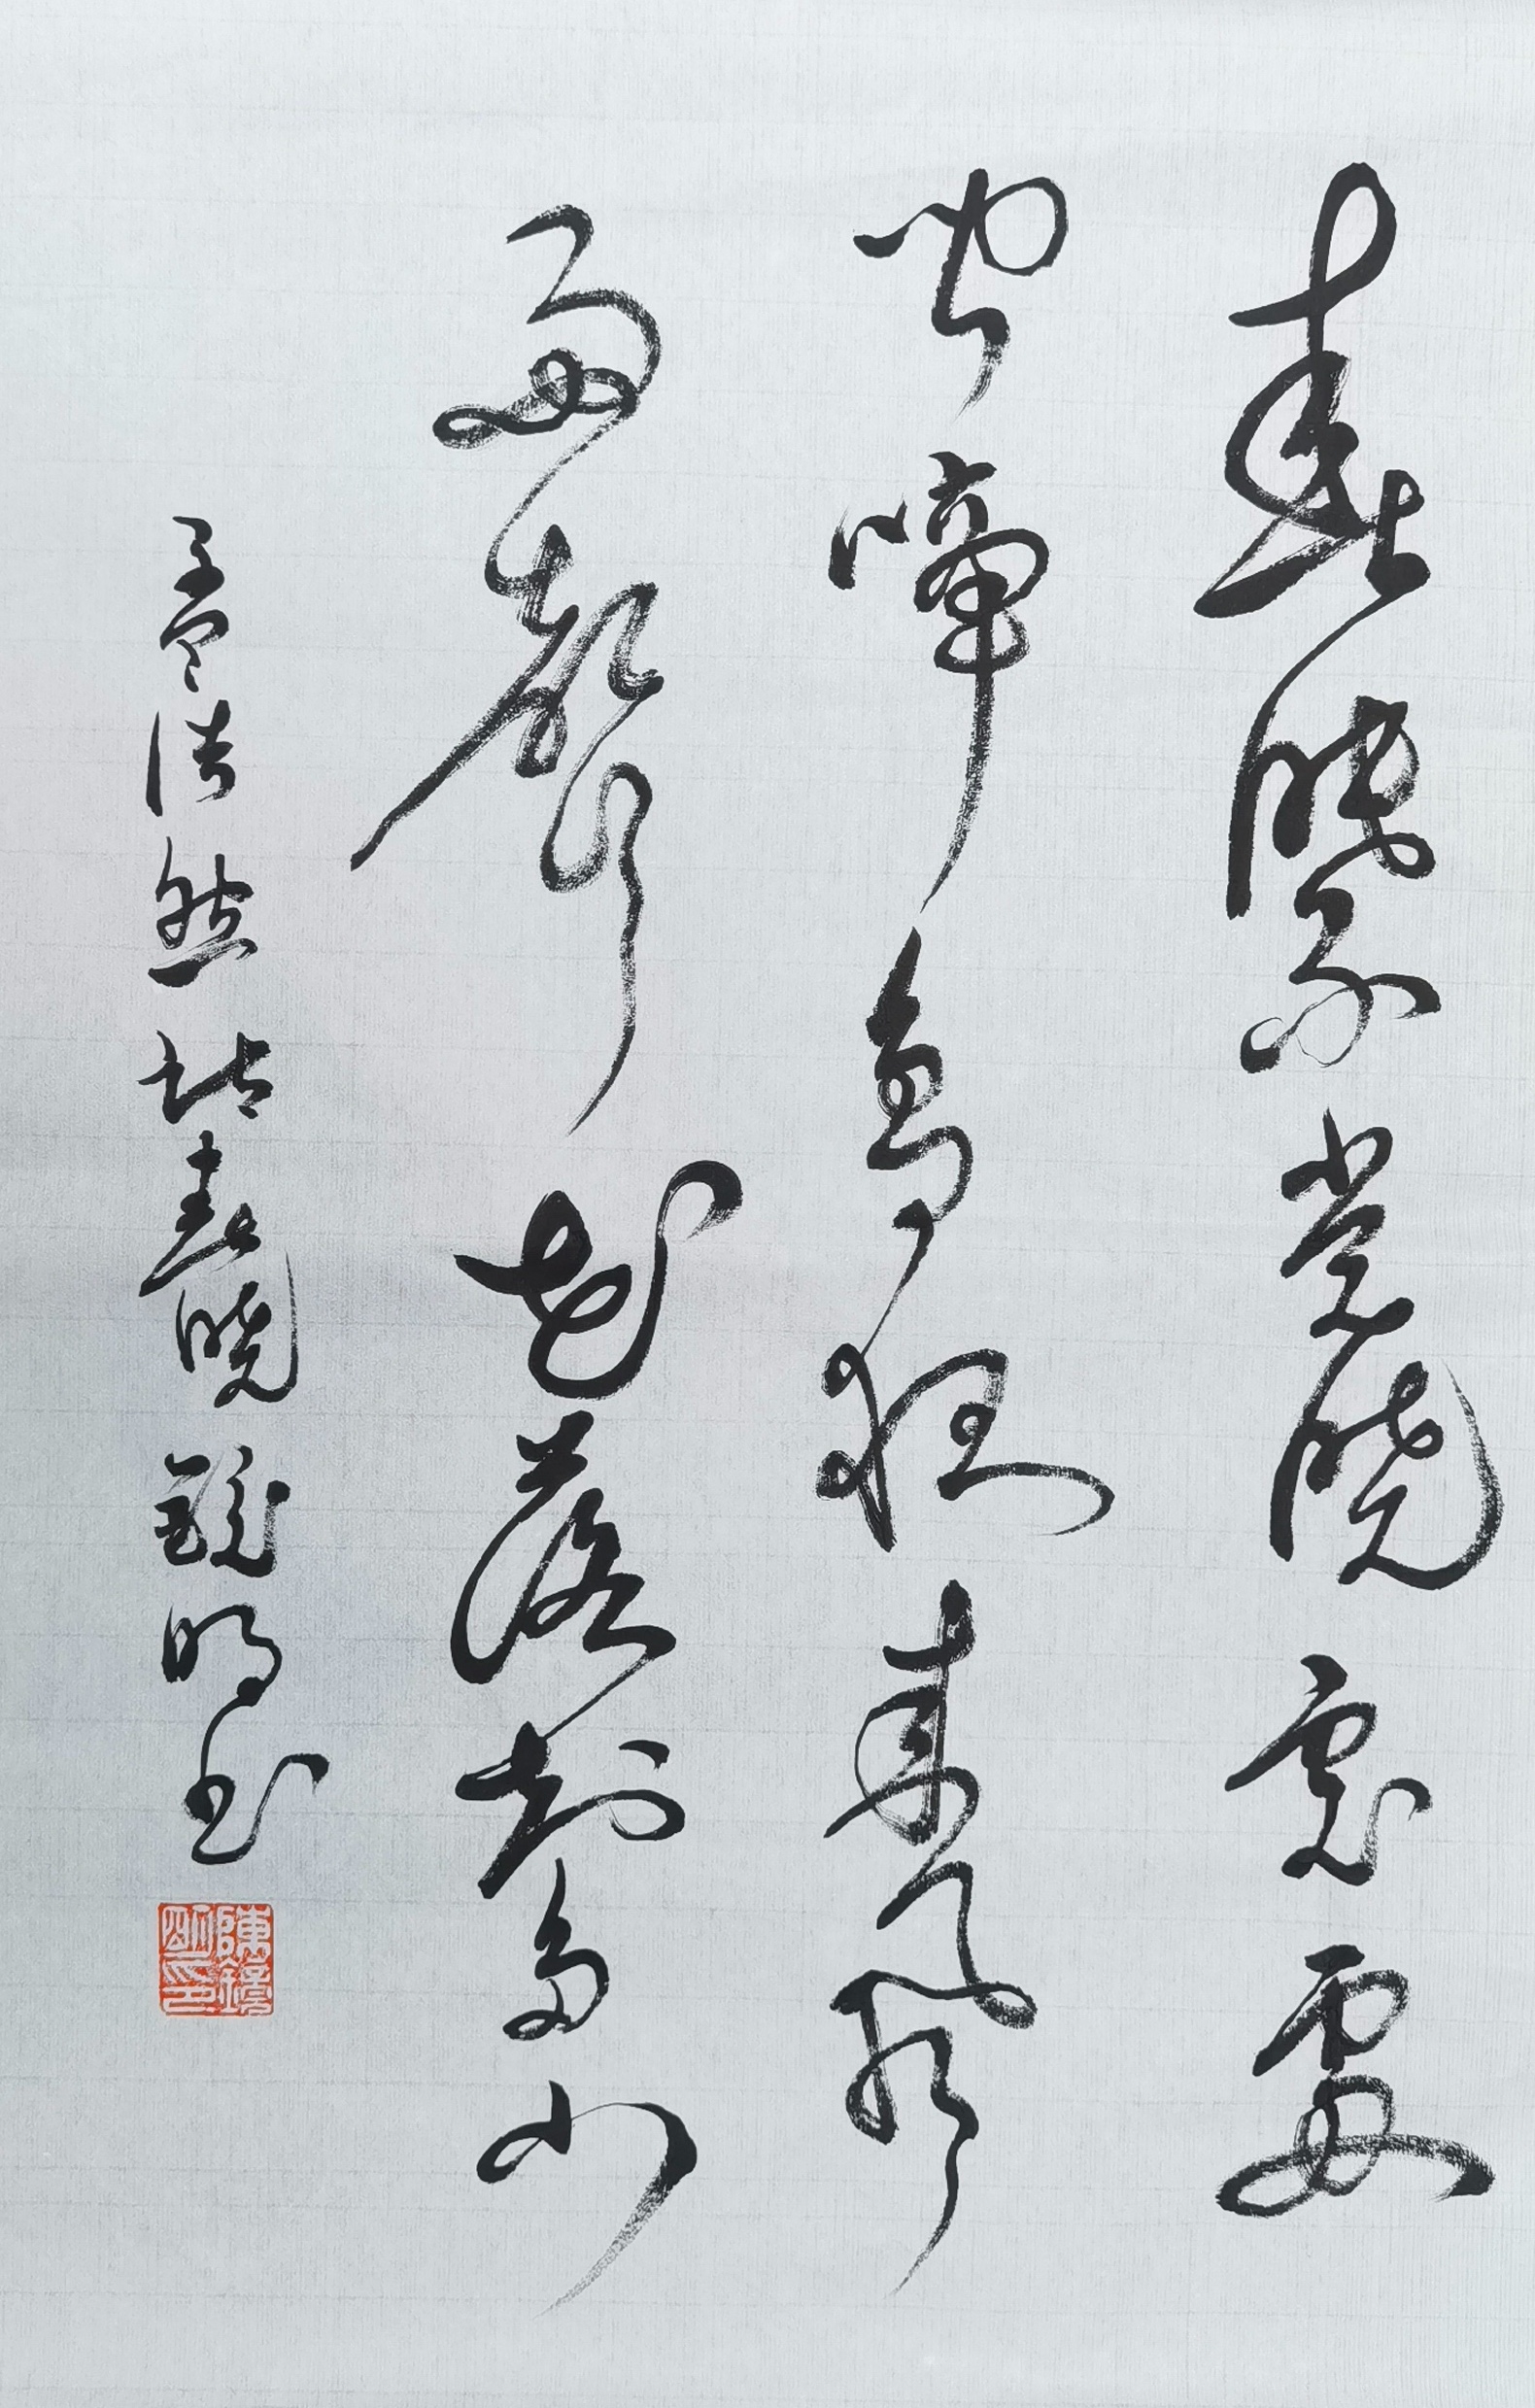 春眠不覺曉處處
聞啼鳥夜來風
雨聲花落知多少
孟浩然詩春曉 鏡明書
陳鏡明印